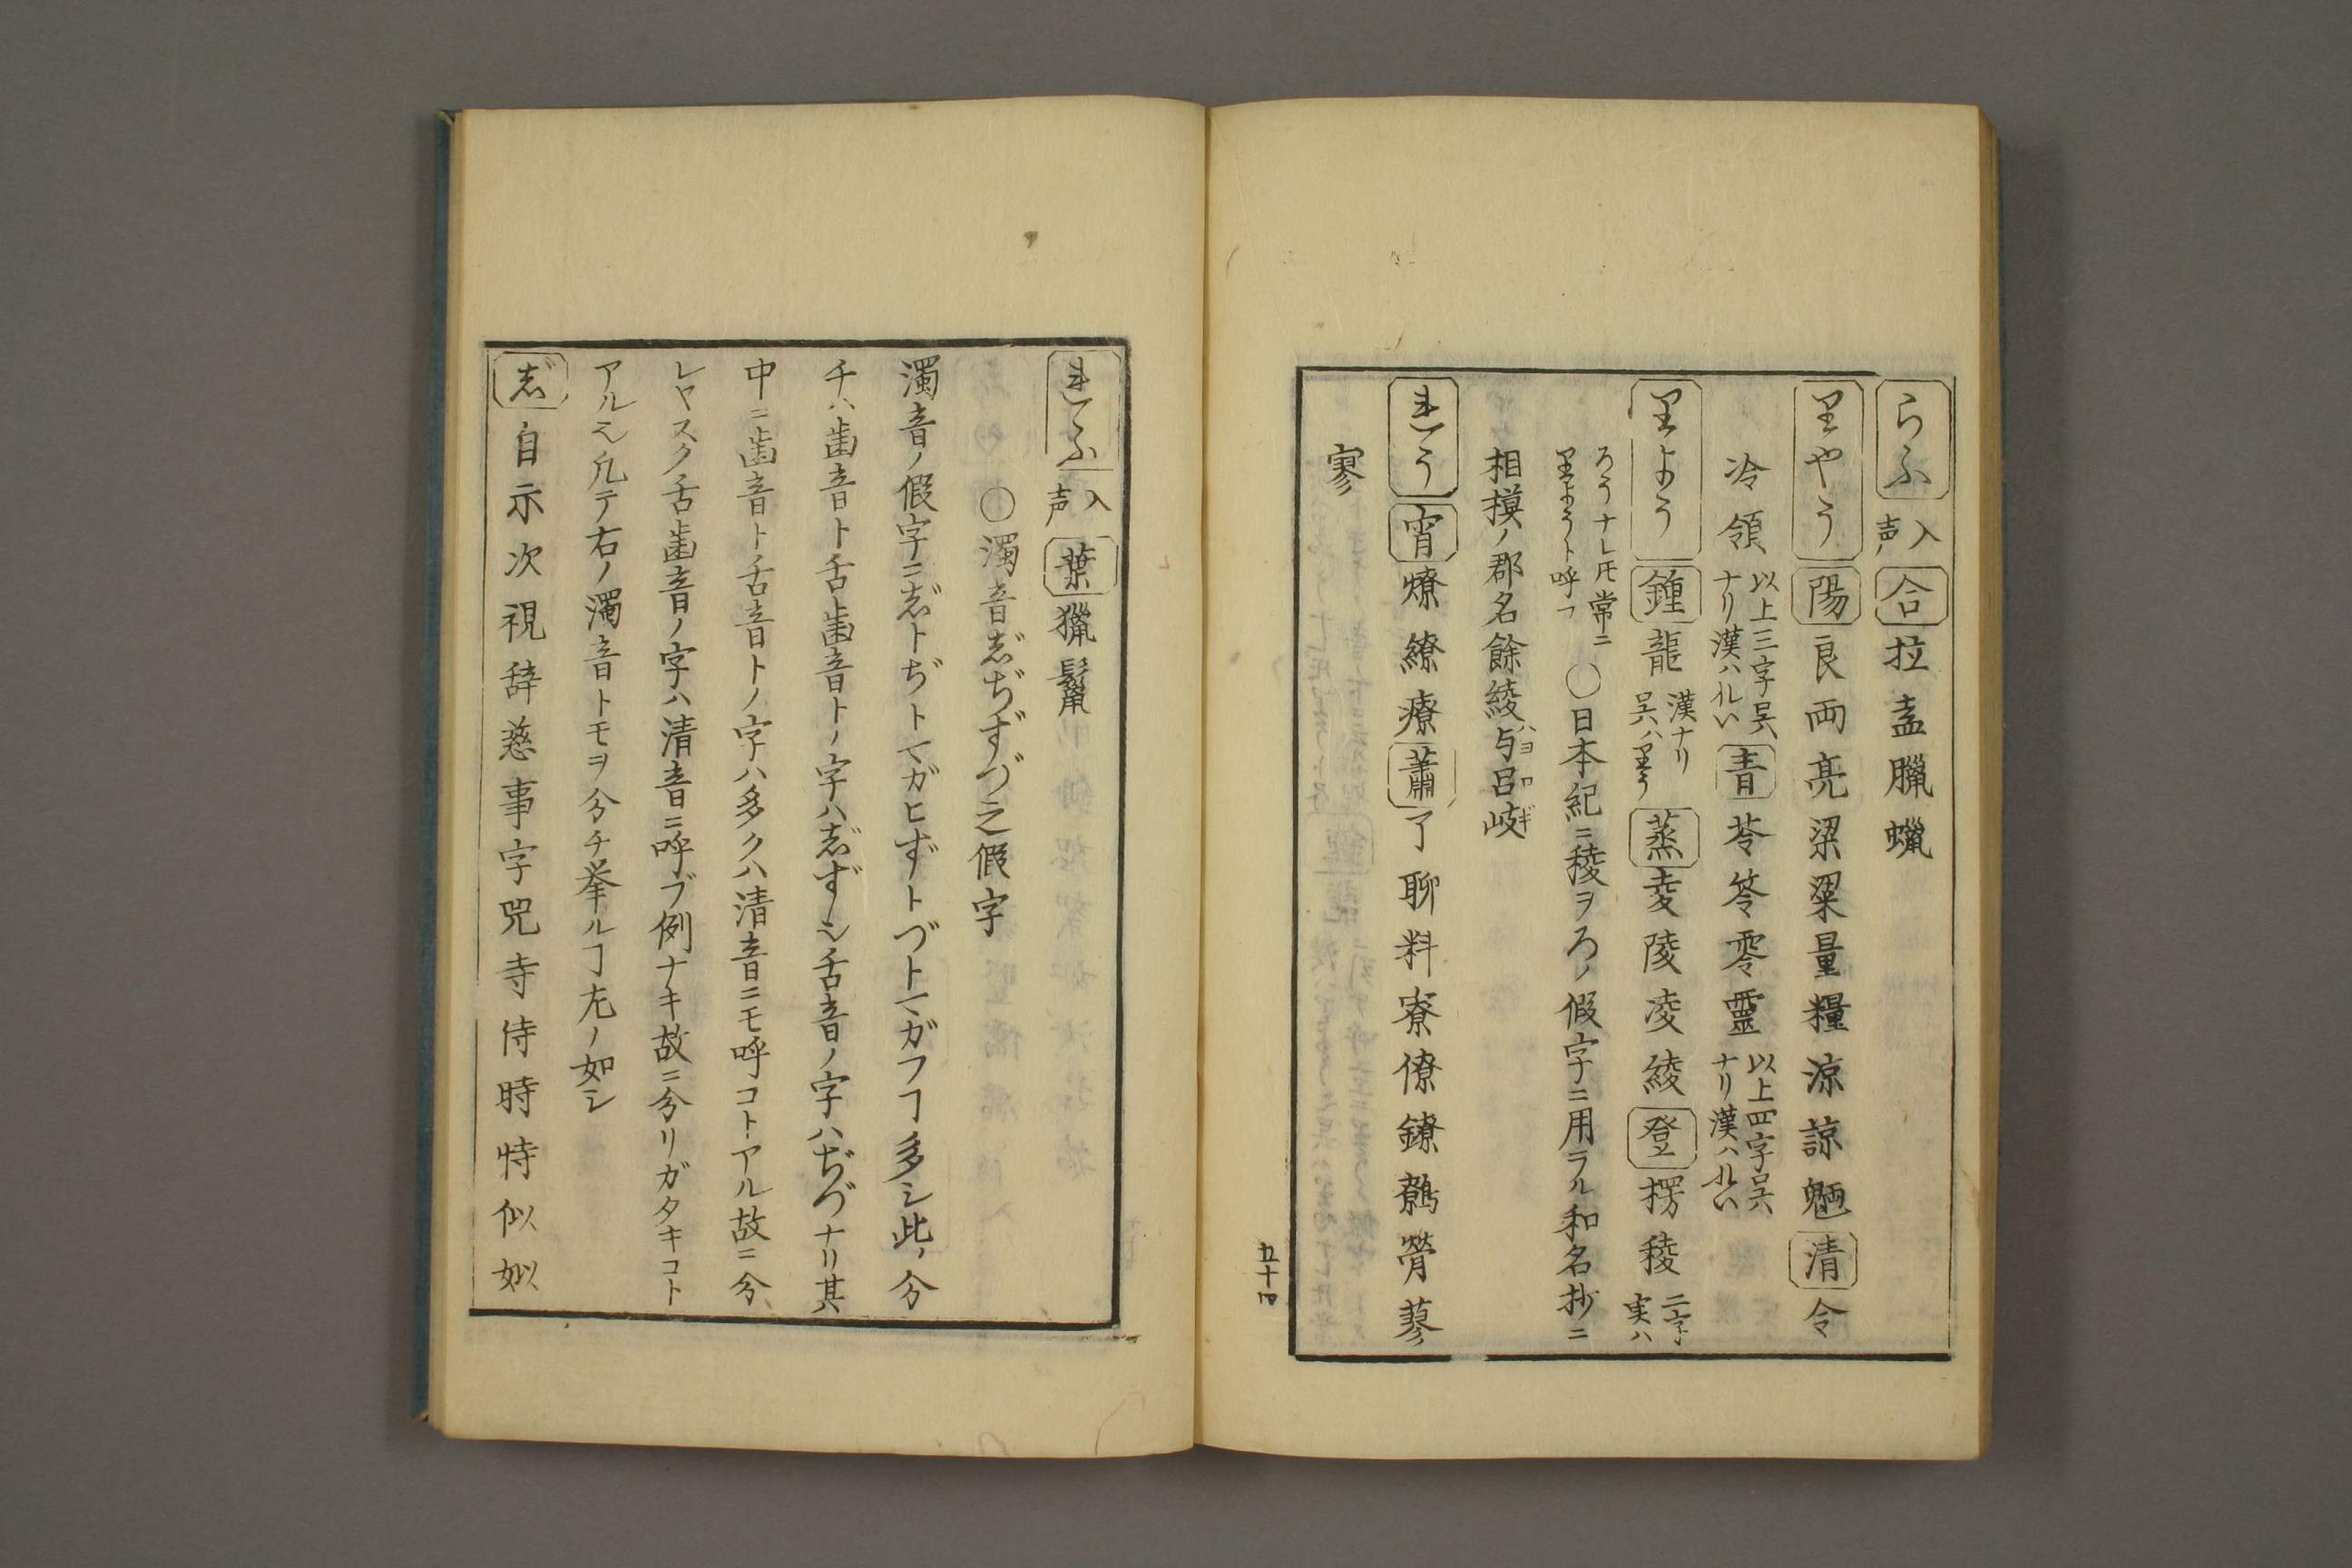 らふ 入声 合 拉 盍 臘 蠟
里やう 陽 良 両 亮 梁 粱 量 糧 涼 諒 魎 清 令
冷 領 以上三字呉ナリ漢ハれい 青 苓 笭 零 靈 以上四字呉ナリ漢ハれい
里よう 鍾 龍 漢ナリ呉ハ里う 蒸 夌 陵 凌 綾 登 楞 稜 二字実ハ
ろうナレ𪜈常ニ里ようト呼フ 〇日本紀ニ稜ヲろノ假字ニ用ラル和名抄ニ
相摸ノ郡名餘綾ハ与呂岐ヨロギ
れう 宵 燎 繚 療 蕭 了 聊 料 寮 僚 鐐 鷯 膋 蓼
寥
五十四
れふ 入声 葉 獵 鬣
〇濁音じぢずづ之假字
濁音ノ假字ニじトぢトマガヒずトづトマガフヿ多シ此ノ分
チハ歯音ト舌歯音トノ字ハじずシ舌音ノ字ハぢづナリ其
中ニ歯音ト舌音トノ字ハ多クハ清音ニモ呼コトアル故ニ分
レヤスク舌歯音ノ字ハ清音ニ呼ブ例ナキ故ニ分リガタキコト
アルシ凡テ右ノ濁音トモヲ分チ挙ルヿ左ノ如シ
じ 自 示 次 視 辞 慈 事 字 兕 寺 侍 時 恃 似 姒